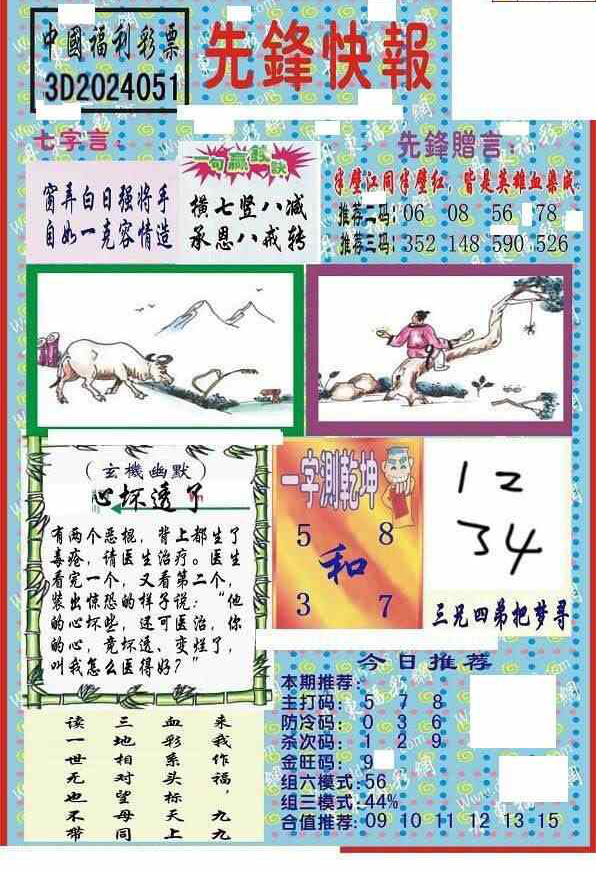 中國福利彩票
3D2024051
先鋒快報
七字言：
窗弄白日强将手
自如一克容情造
一句贏錢訣
横七竖八减
承恩八戒转
先鋒贈言：
半壁江同半壁红，皆是英雄血染成
推荐二码：06 08 56 78
推荐三码：352 148 590 526
（玄機幽默）
心坏透了
有两个恶棍，背上都生了
毒疮，请医生治疗。医生
看完一个，又看第二个，
装出惊恐的样子说："他
的心坏些，还可医治，你
的心，竟坏透、变烂了，
叫我怎么医得好？"
一字測乾坤
5 8
和
3 7
12
34
三兄四弟把梦寻
今日推荐
本期推荐：
主打码：5 7 8
防冷码：0 3 6
杀次码：1 2 9
金旺码：9
组六模式：56
组三模式：44%
合值推荐：09 10 11 12 13 15
来我作福，九九
血彩系头标天上
三地相对望母同
读一世无也不带